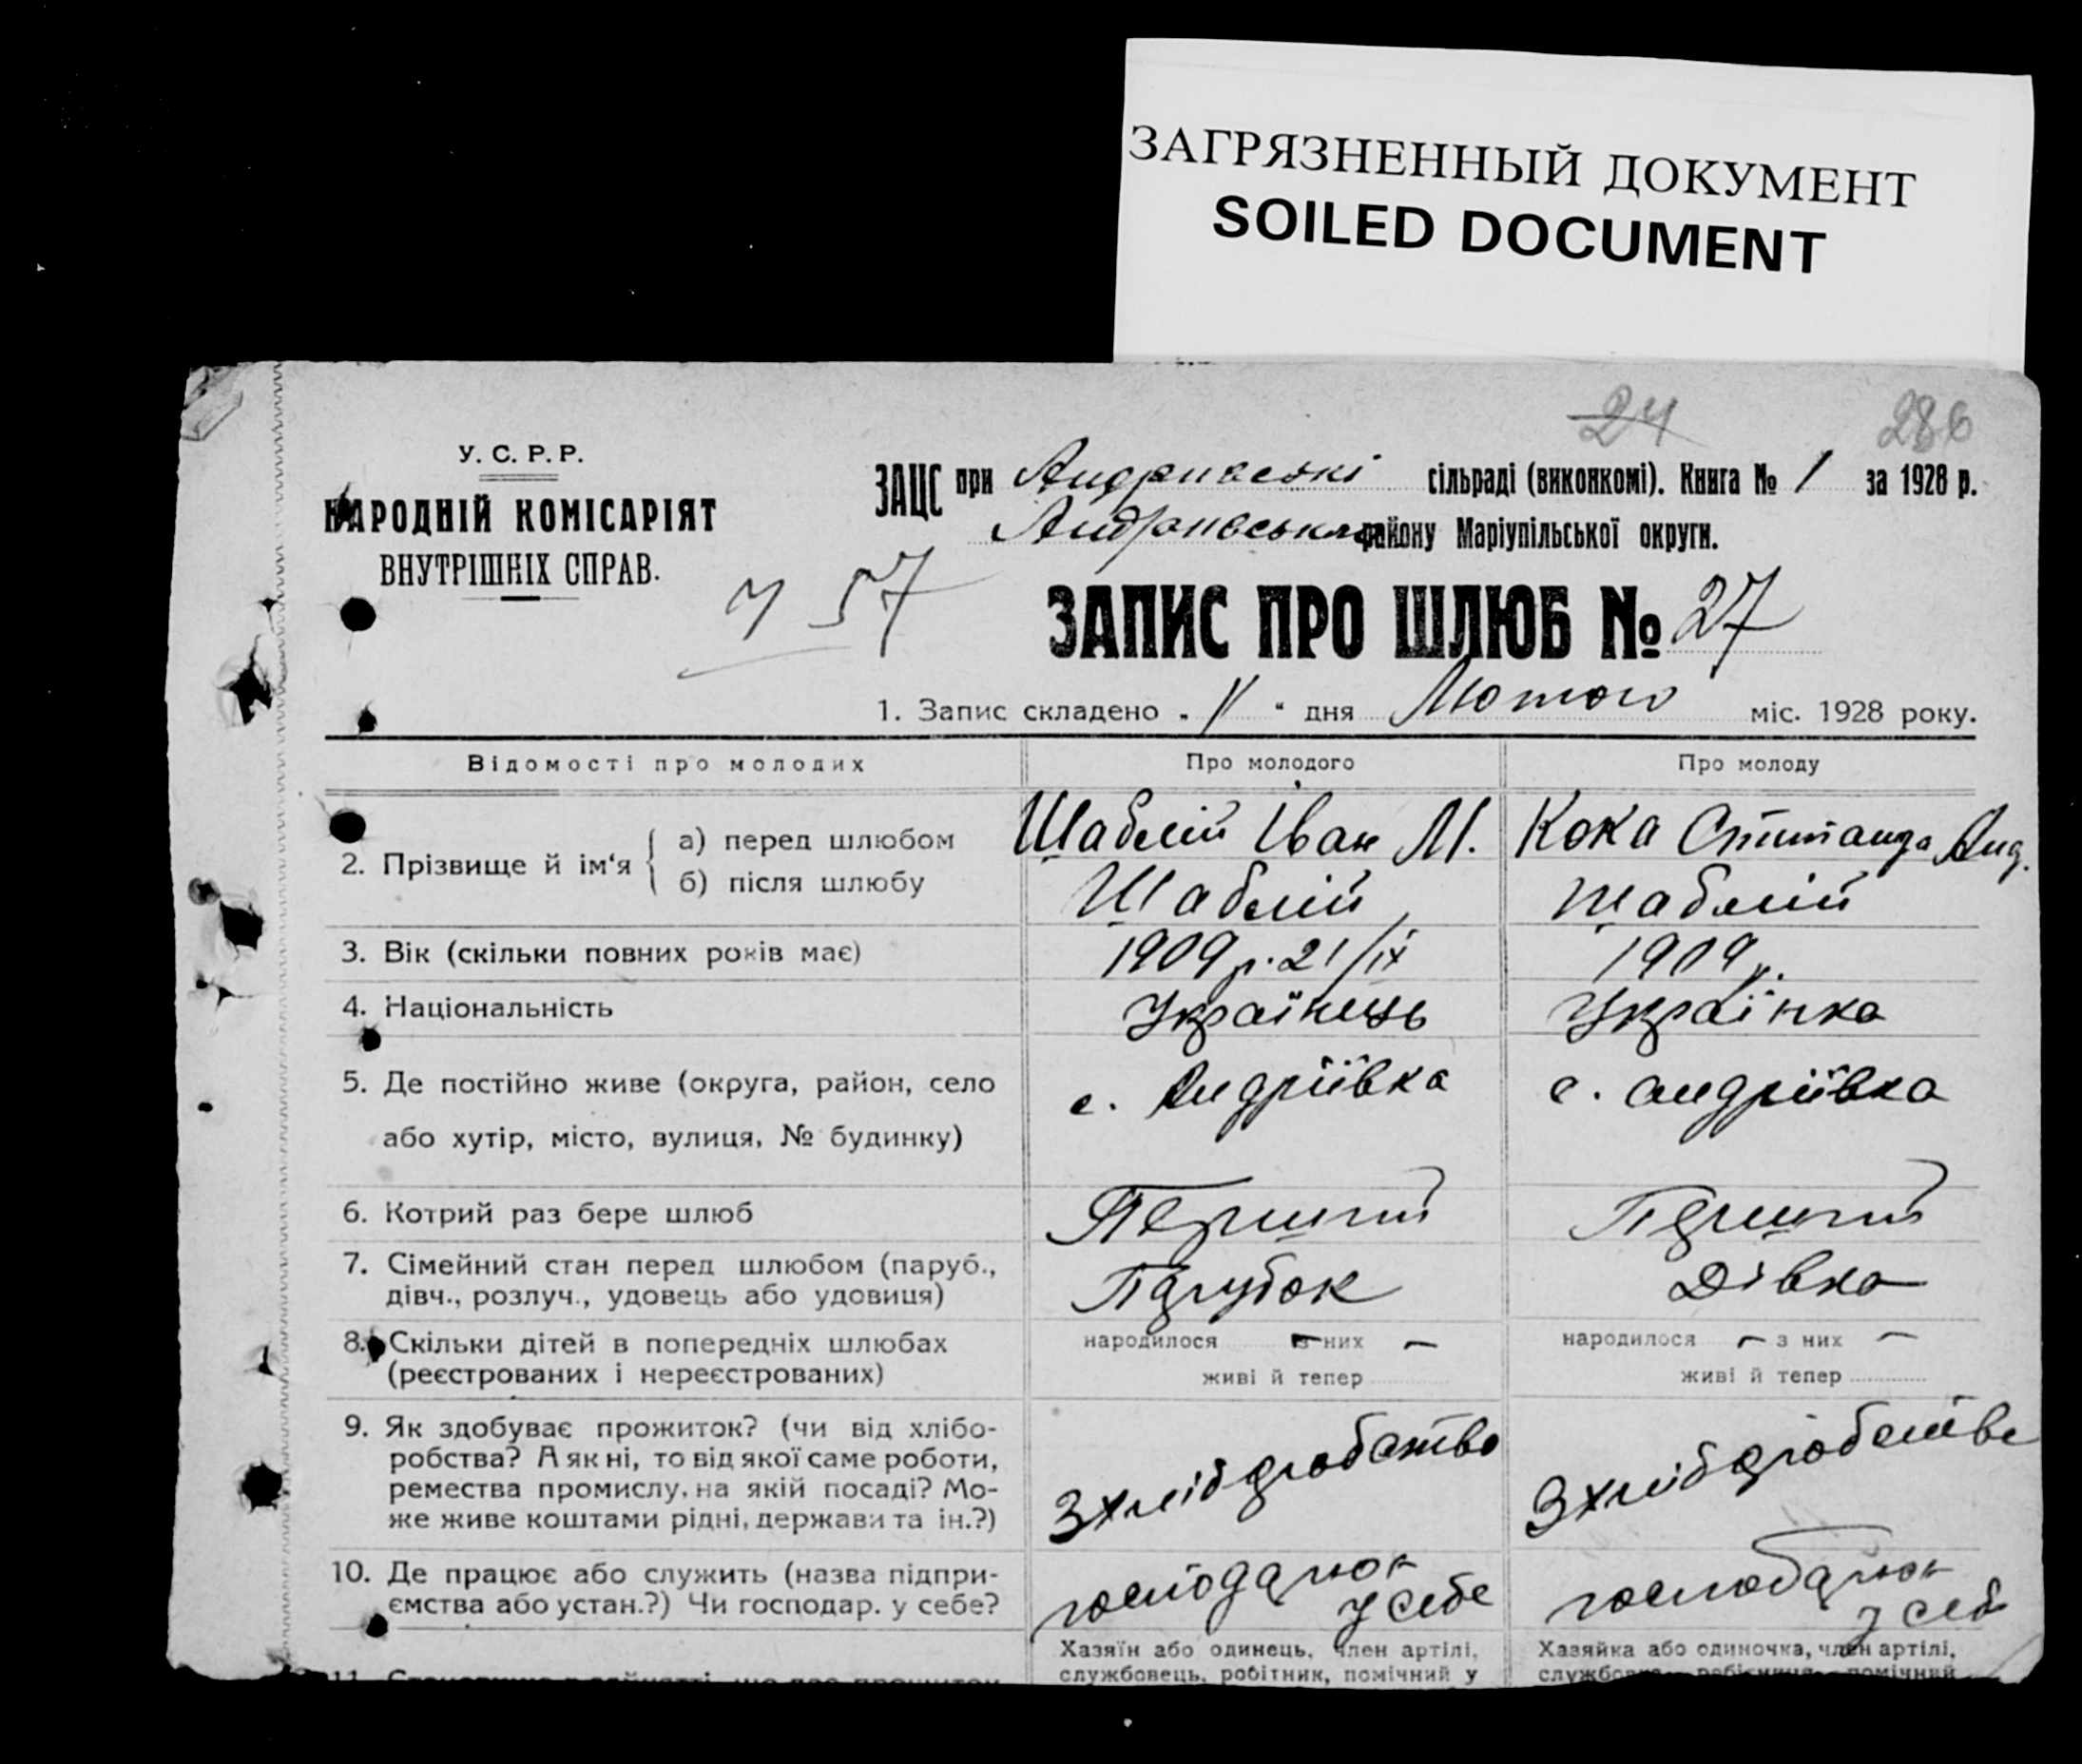 ЗАГРЯЗНЕННЫЙ ДОКУМЕНТ
SOILED DOCUMENT
24 286
У. С. Р. Р.
НАРОДНІЙ КОМІСАРІЯТ
ВНУТРІШНІХ СПРАВ.
ЗАЦС при сільраді (виконкомі). Книга № 1 за 1928 р.
району Маріупільської округи.
57
ЗАПИС ПРО ШЛЮБ № 27
1. Запис складено „ “ дня Лютого міс. 1928 року.
Відомості про молодих Про молодого Про молоду
2. Прізвище й ім'я { а) перед шлюбом Шаблій Іван М. Кока Анд.
б) після шлюбу Шаблій Шаблій
3. Вік (скільки повних років має) 1909 р. 21/ІХ 1909 р.
4. Національність Українець Українка
5. Де постійно живе (округа, район, село с. Андріївка с. Андріївка
або хутір, місто, вулиця, № будинку)
6. Котрий раз бере шлюб Перший Перший
7. Сімейний стан перед шлюбом (паруб., Парубок Дівка
дівч., розлуч., удовець або удовиця)
8. Скільки дітей в попередніх шлюбах народилося — з них — народилося — з них —
(реєстрованих і нереєстрованих) живі й тепер живі й тепер
9. Як здобуває прожиток? (чи від хлібо-
робства? А як ні, то від якої саме роботи,
ремества промислу, на якій посаді? Мо-
же живе коштами рідні, держави та ін.?)
10. Де працює або служить (назва підпри-
ємства або устан.?) Чи господар. у себе? у себе у себе
Хазяїн або одинець, член артілі, Хазяйка або одиночка, член артілі,
службовець, робітник, помічний у помічний